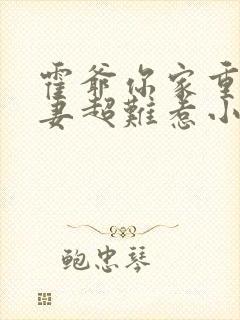 霍爷你家重
妻超難惹小
鲍忠琴